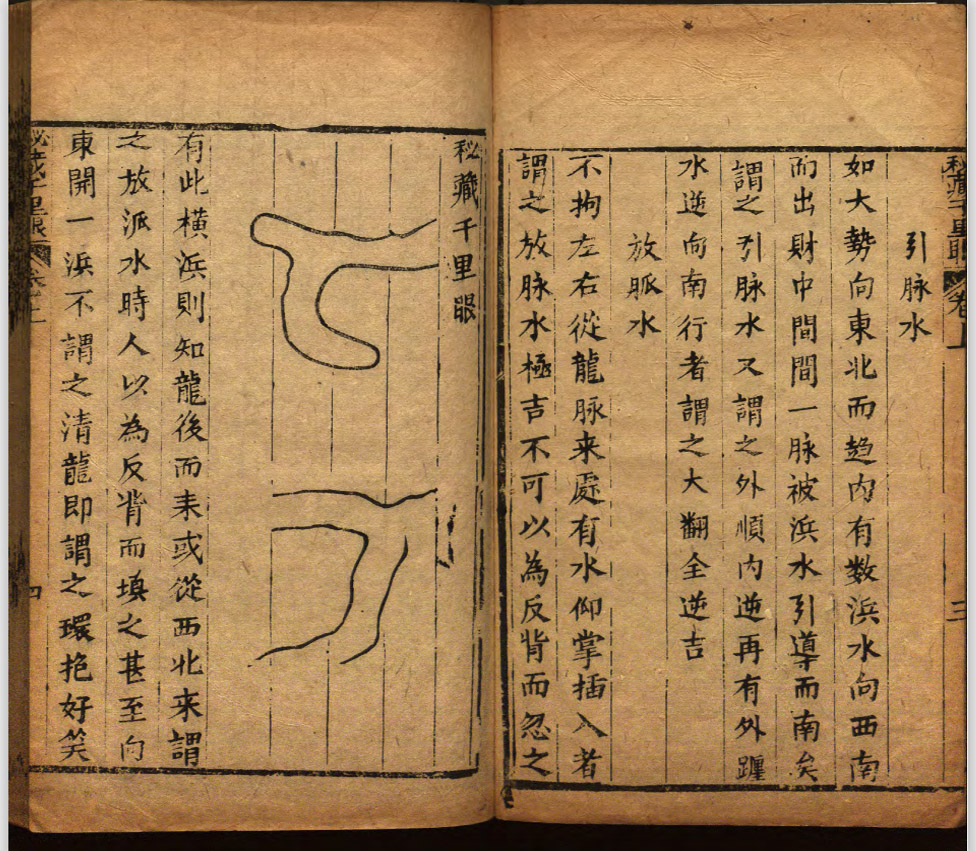 秘藏千里眼
卷上
三
引脉水
如大勢向東北而趋内有数浜水向西南
而出財中間間一脉被浜水引導而南矣
謂之引脉水又謂之外順内逆再有外躔
水逆向南行者謂之大翻全逆吉
放脈水
不拘左右從龍脉来處有水仰掌插入者
謂之放脉水極吉不可以為反背而忽之
秘藏千里眼
有此横浜則知龍後而来或從西北来謂
之放派水時人以為反背而填之甚至向
東開一浜不謂之清龍即謂之環抱好笑
秘藏千里眼
卷之上
四